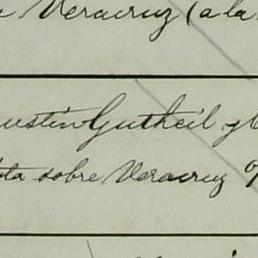 Veracruz (a la
ustin Gutheil y C
ta sobre Veracruz